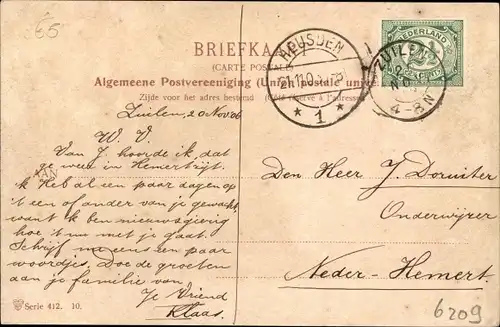 E5
BRIEFKA
(CARTE POSTALE)
Algemeene Postvereeniging (Union postale unive
Zijde voor het adres bestemd (Côté réservé à l'adresse
HEUSDEN
21.11.0
1
NEDERLAND
ZUILEN
20
NO
4-8N
Zuilen, 20 Nov 06
W. V.
Van J. hoorde ik, dat
ge weer in Hemert zijt
AAN
Ik heb al een paar dagen op
't een of ander van je gewacht
want ik ben nieuwsgierig
hoe 't nu met je gaat.
Schrijf nu eens een paar
woordjes. Doe de groeten
aan je familie van
Je Vriend
Klaas.
Den Heer J. Doruiter
Onderwijzer
Neder-Hemert.
Serie 412. 10.
6209